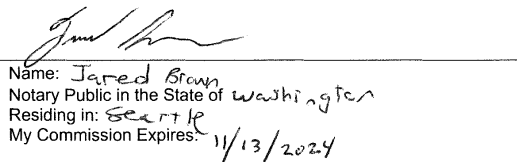 Name: Jared Brown
Notary Public in the State of Washington
Residing in: Seattle
My Commission Expires: 11/13/2024